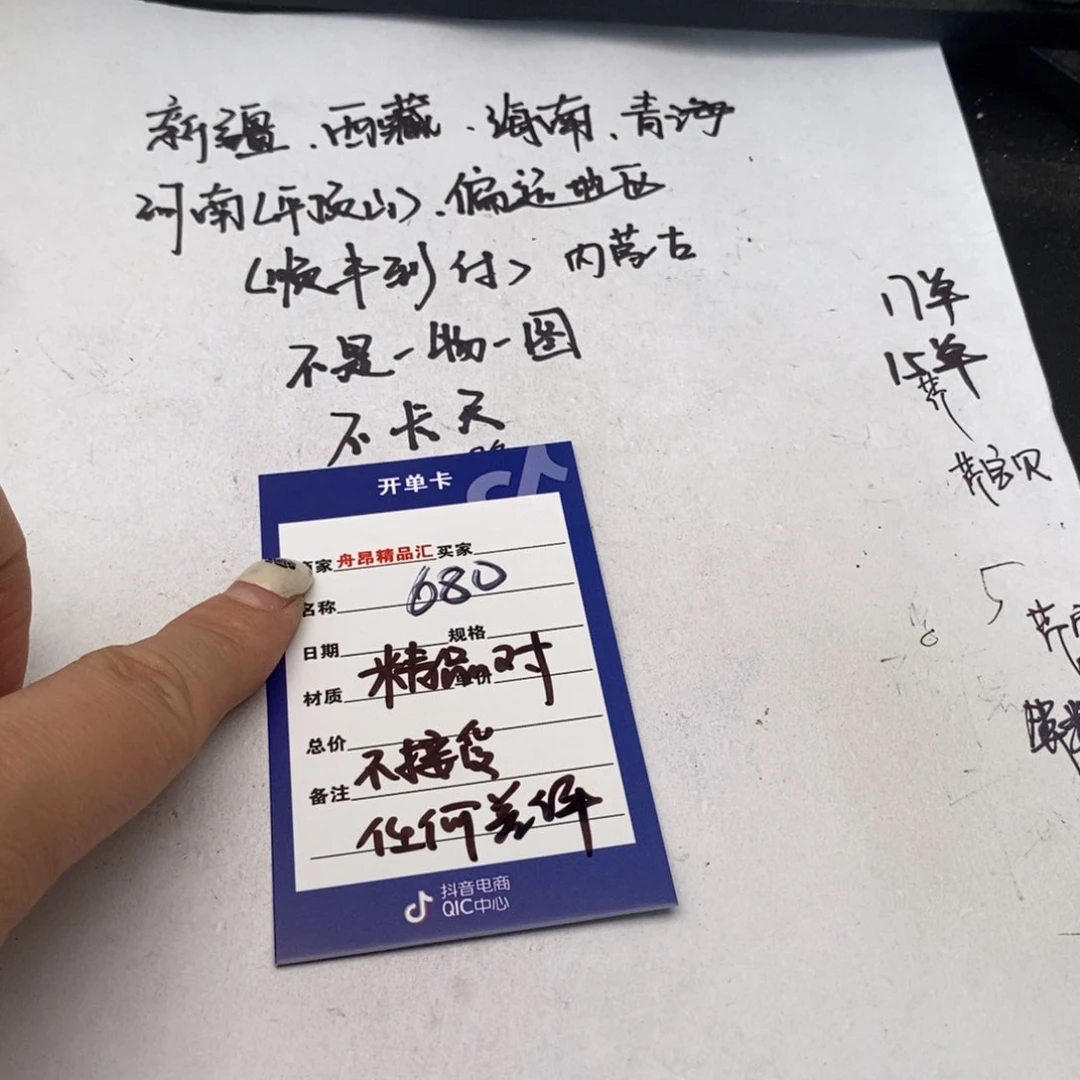 新疆、西藏、海南、青海
河南(平顶山)、偏远地区
(顺丰到付) 内蒙古
不是一物一图
不卡天
17单
15单
芹宝贝
开单卡
家 舟昂精品汇 买家
名称 680
日期 规格
材质 精品 对
总价
不接受
备注
任何差评
抖音电商
QIC中心